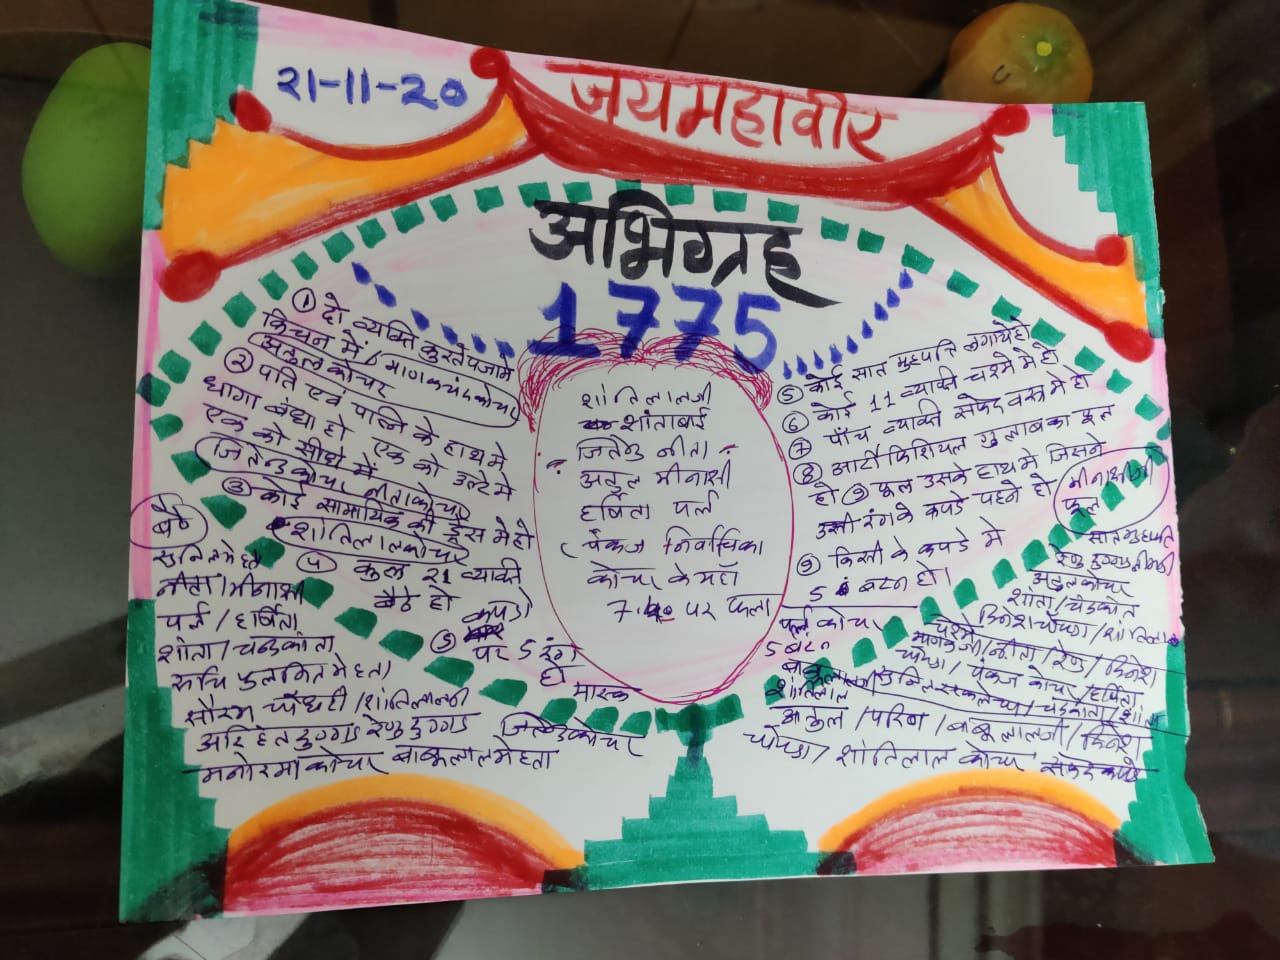 २१-११-२०
जय महावीर
अभिग्रह
1775
① दो व्यक्ति कुरते पजामे
किचन में / माणकचंद कोचर
अतुल कोचर
② पति एवं पत्नि के हाथ मे
धागा बंधा हो एक को उल्टे मे
एक को सीधे में
जितेन्द्र कोचर नीता कोचर
③ कोई सामायिक की ड्रेस मे हो
शांतिलाल कोचर
④ कुल २१ व्यक्ति
बैठे हो
कपडो
पर 5 रंग
हो
मास्क
जितेन्द्र कोचर
बैठे
नीता / मीनाक्षी
पर्ल / हर्षिता
शांता / चन्द्रकांता
रुचि मेहता
सौरभ चौधरी / शांतिलालजी
अरिहंत डुग्गड रेणु डुग्गड
मनोरमा कोचर बाबूलाल मेहता
शांतिलालजी
शांताबाई
जितेन्द्र नीता
अतुल मीनाक्षी
हर्षिता पर्ल
पंकज
कोचर के यहाँ
पर फला
⑤ कोई सात मुहपत्ति लगाये हो
⑥ कोई 11 व्यक्ति चश्मे मे हो
⑦ पाँच व्यक्ति सफेद वस्त्र मे हो
⑧ आर्टीफिशियल गुलाब का फूल
हो ⑨ फूल उसके हाथ मे जिसने
उसी रंग के कपडे पहने हो
मीनाक्षीजी
फूल
⑨ किसी के कपडे मे
5 बटन हो।
पर्ल कोचर
5 बटन
सात मुहपत्ति
अतुल कोचर
शांता / चंद्रकांता
दिनेश चोपडा / शांतिलाल
चश्मे
माणकजी / नीता / रेणु / दिनेश
चोपडा / पंकज कोचर / हर्षिता
शांतिलाल
अतुल / परिण / बाबूलालजी / दिनेश
चोपडा / शांतिलाल कोचर सफेद कपडे